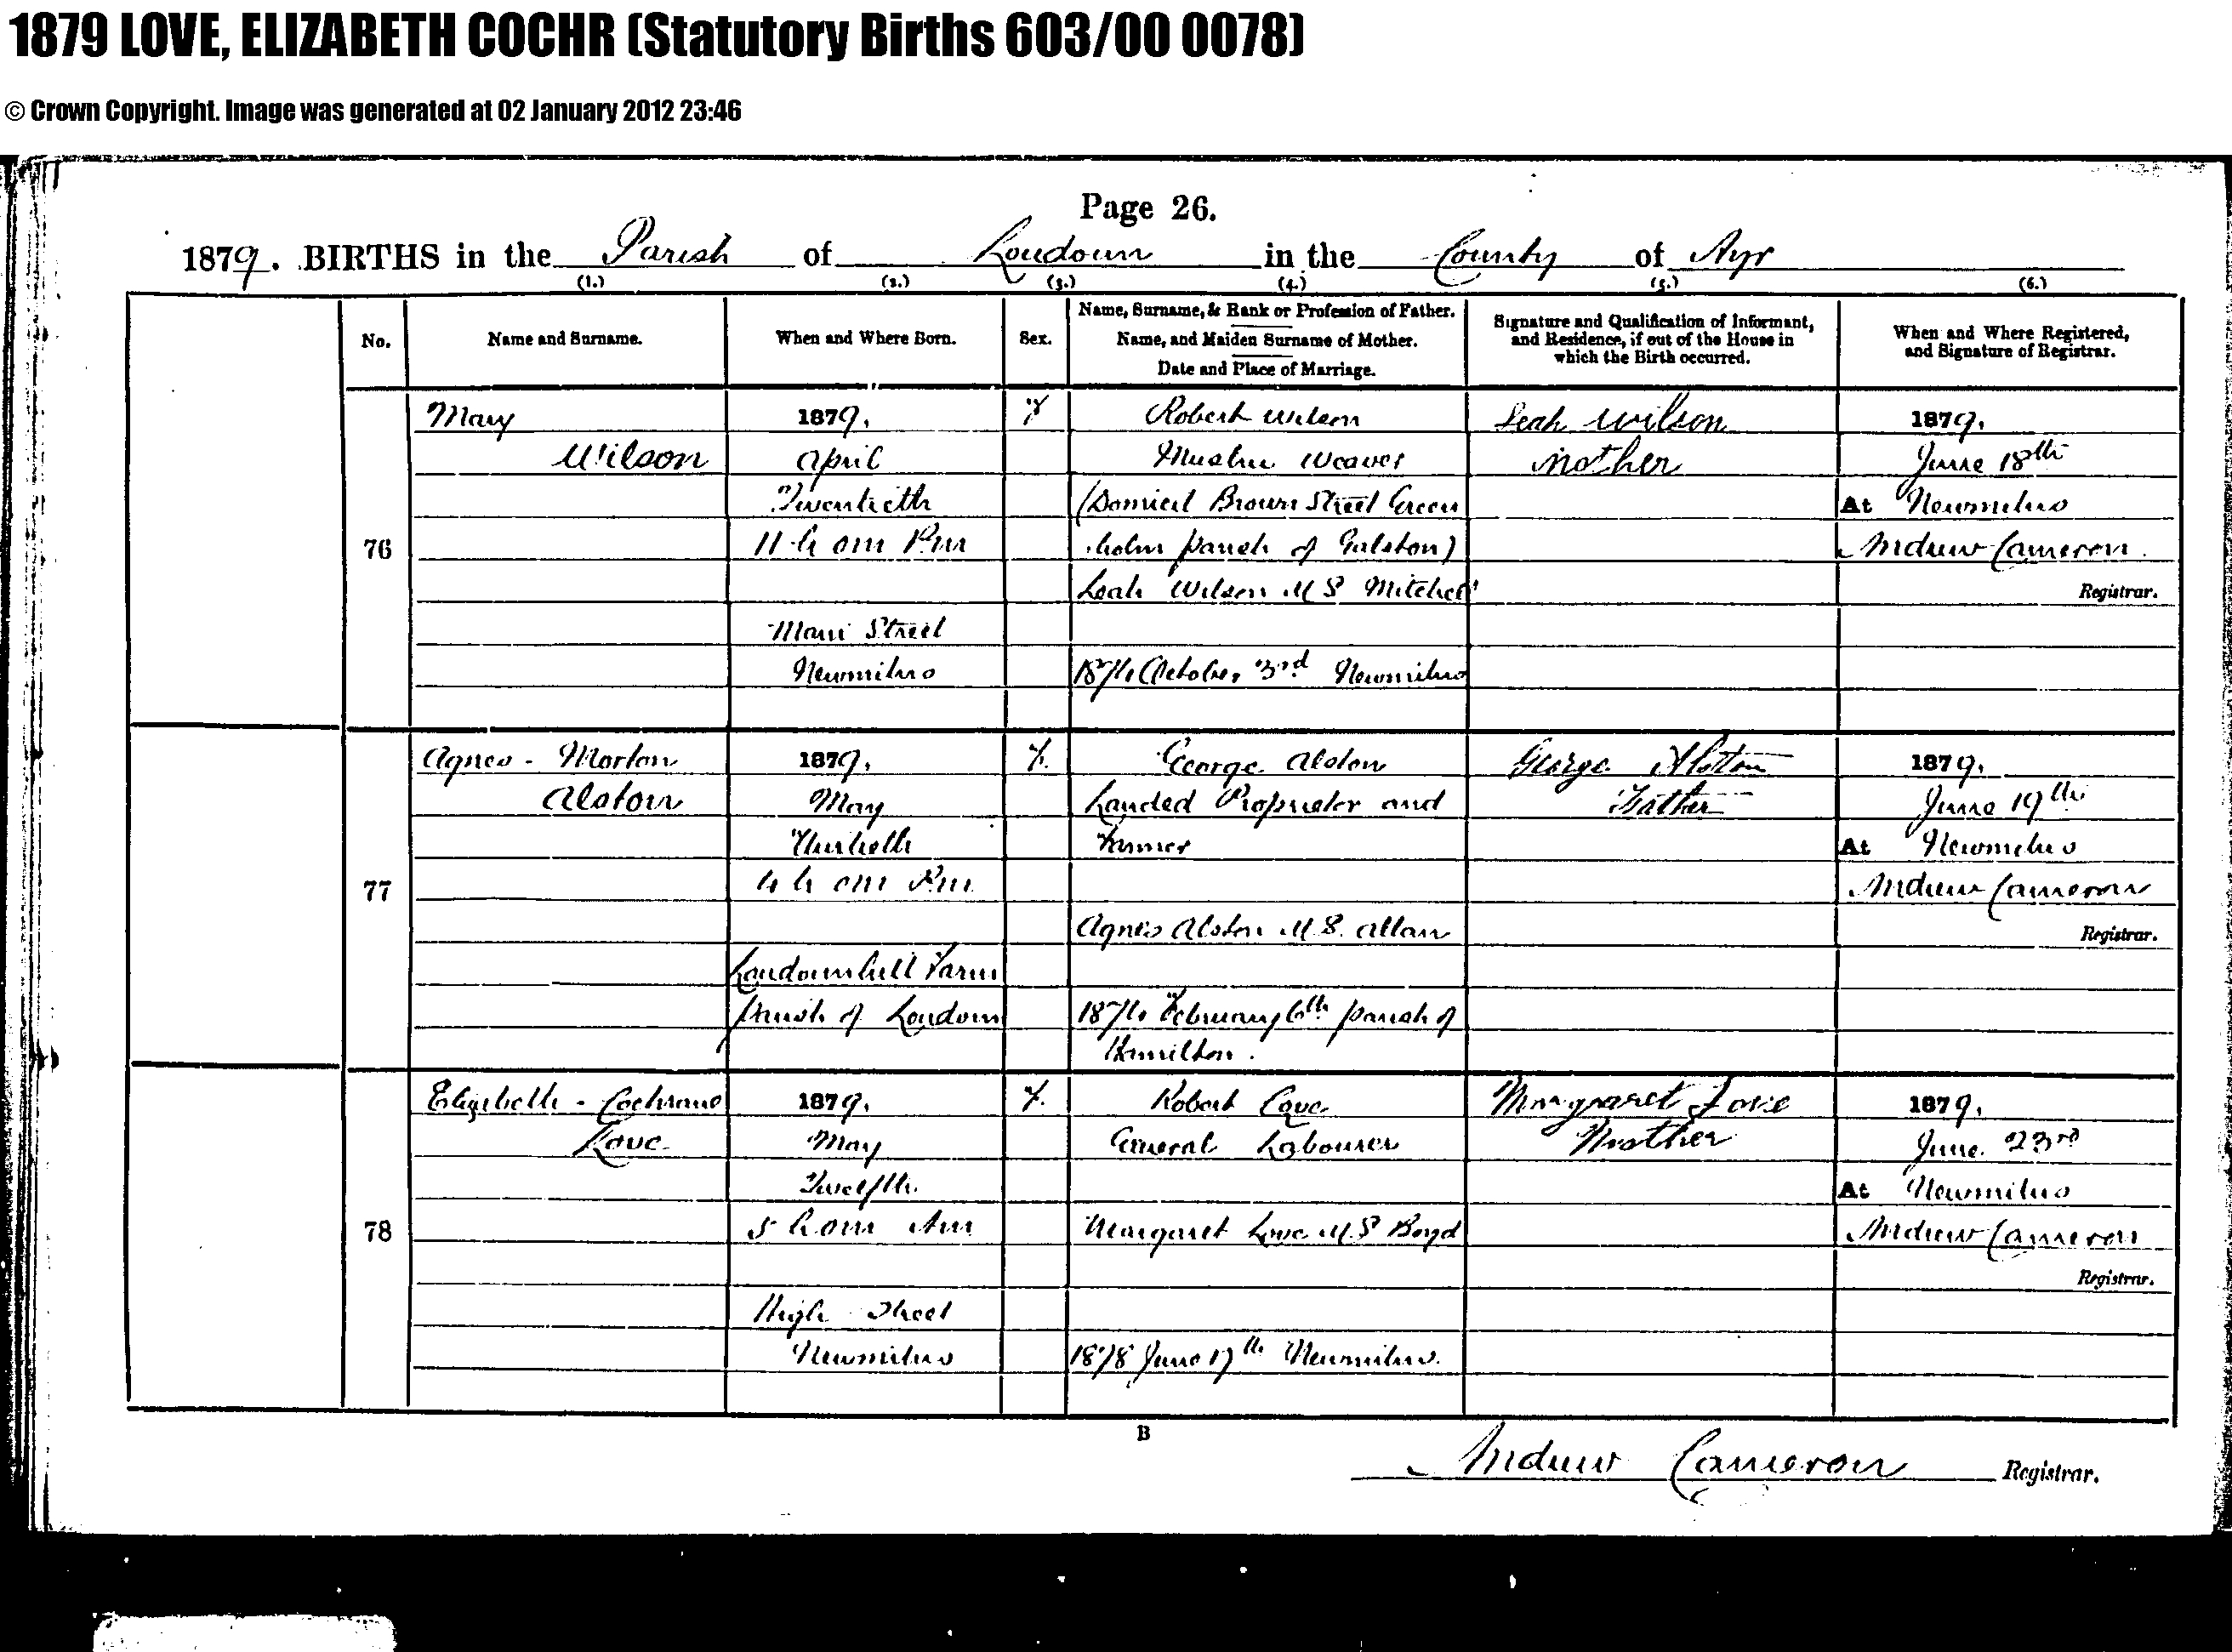 1879 LOVE, ELIZABETH COCHR (Statutory Births 603/00 0078)
© Crown Copyright. Image was generated at 02 January 2012 23:46
Page 26.
1879. BIRTHS in the Parish of Loudoun in the County of Ayr
(1.) (2.) (3.) (4.) (5.) (6.)
No.
Name and Surname.
When and Where Born.
Sex.
Name, Surname, & Rank or Profession of Father.
Name, and Maiden Surname of Mother.
Date and Place of Marriage.
Signature and Qualification of Informant,
and Residence, if out of the House in
which the Birth occurred.
When and Where Registered,
and Signature of Registrar.
76
Mary
Wilson
1879.
April
Twentieth
11 h om Pm
Main Street
Newmilns
F
Robert Wilson
Muslin Weaver
(Domicil Brown Street Green
holm parish of Galston)
Leah Wilson M S Mitchell
October 3rd Newmilns
Leah Wilson
Mother
1879.
June 18th
At Newmilns
Andrew Cameron
Registrar.
77
Agnes - Morton
Alston
1879.
May
Thirtieth
4 h om Pm
Loudounhill Farm
parish of Loudoun
F.
George Alston
Landed Proprietor and
Farmer
Agnes Alston M.S. Allan
February 6th parish of
Hamilton.
George Alston
Father
1879.
June 19th
At Newmilns
Andrew Cameron
Registrar.
78
Elizabeth - Cochrane
Love
1879.
May
Twelfth.
5 h om Am
High Street
Newmilns
F.
Robert Love
General Labourer
Margaret Love M.S Boyd
1878 June 17th Newmilns.
Margaret Love
Mother
1879.
June 23rd
At Newmilns
Andrew Cameron
Registrar.
B
Andrew Cameron Registrar.